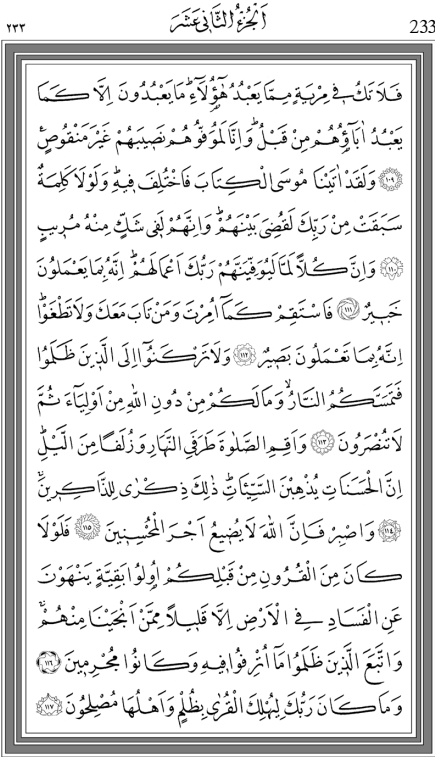 ٢٣٣ اَلْجُزْءُ الثَّانٖى عَشَرَ 233
فَلَا تَكُ فٖى مِرْيَةٍ مِمَّا يَعْبُدُ هٰٓؤُ۬لَٓاءِؕ مَا يَعْبُدُونَ اِلَّا كَمَا
يَعْبُدُ اٰبَٓاؤُ۬هُمْ مِنْ قَبْلُؕ وَاِنَّا لَمُوَفُّوهُمْ نَصٖيبَهُمْ غَيْرَ مَنْقُوصٍࣖ
﴿١٠٩﴾ وَلَقَدْ اٰتَيْنَا مُوسَى الْكِتَابَ فَاخْتُلِفَ فٖيهِؕ وَلَوْلَا كَلِمَةٌ
سَبَقَتْ مِنْ رَبِّكَ لَقُضِىَ بَيْنَهُمْؕ وَاِنَّهُمْ لَفٖى شَكٍّ مِنْهُ مُرٖيبٍ
﴿١١٠﴾ وَاِنَّ كُلًّا لَمَّا لَيُوَفِّيَنَّهُمْ رَبُّكَ اَعْمَالَهُمْؕ اِنَّهُ بِمَا يَعْمَلُونَ
خَبٖيرٌ ﴿١١١﴾ فَاسْتَقِمْ كَمَٓا اُمِرْتَ وَمَنْ تَابَ مَعَكَ وَلَا تَطْغَوْاؕ
اِنَّهُ بِمَا تَعْمَلُونَ بَصٖيرٌ ﴿١١٢﴾ وَلَا تَرْكَنُٓوا اِلَى الَّذٖينَ ظَلَمُوا
فَتَمَسَّكُمُ النَّارُۙ وَمَا لَكُمْ مِنْ دُونِ اللّٰهِ مِنْ اَوْلِيَٓاءَ ثُمَّ
لَا تُنْصَرُونَ ﴿١١٣﴾ وَاَقِمِ الصَّلٰوةَ طَرَفَىِ النَّهَارِ وَزُلَفًا مِنَ الَّيْلِؕ
اِنَّ الْحَسَنَاتِ يُذْهِبْنَ السَّيِّـَٔاتِؕ ذٰلِكَ ذِكْرٰى لِلذَّاكِرٖينَۚ
﴿١١٤﴾ وَاصْبِرْ فَاِنَّ اللّٰهَ لَا يُضٖيعُ اَجْرَ الْمُحْسِنٖينَ ﴿١١٥﴾ فَلَوْلَا
كَانَ مِنَ الْقُرُونِ مِنْ قَبْلِكُمْ اُو۬لُوا بَقِيَّةٍ يَنْهَوْنَ
عَنِ الْفَسَادِ فِى الْاَرْضِ اِلَّا قَلٖيلًا مِمَّنْ اَنْجَيْنَا مِنْهُمْۚ
وَاتَّبَعَ الَّذٖينَ ظَلَمُوا مَٓا اُتْرِفُوا فٖيهِ وَكَانُوا مُجْرِمٖينَ ﴿١١٦﴾
وَمَا كَانَ رَبُّكَ لِيُهْلِكَ الْقُرٰى بِظُلْمٍ وَاَهْلُهَا مُصْلِحُونَ ﴿١١٧﴾